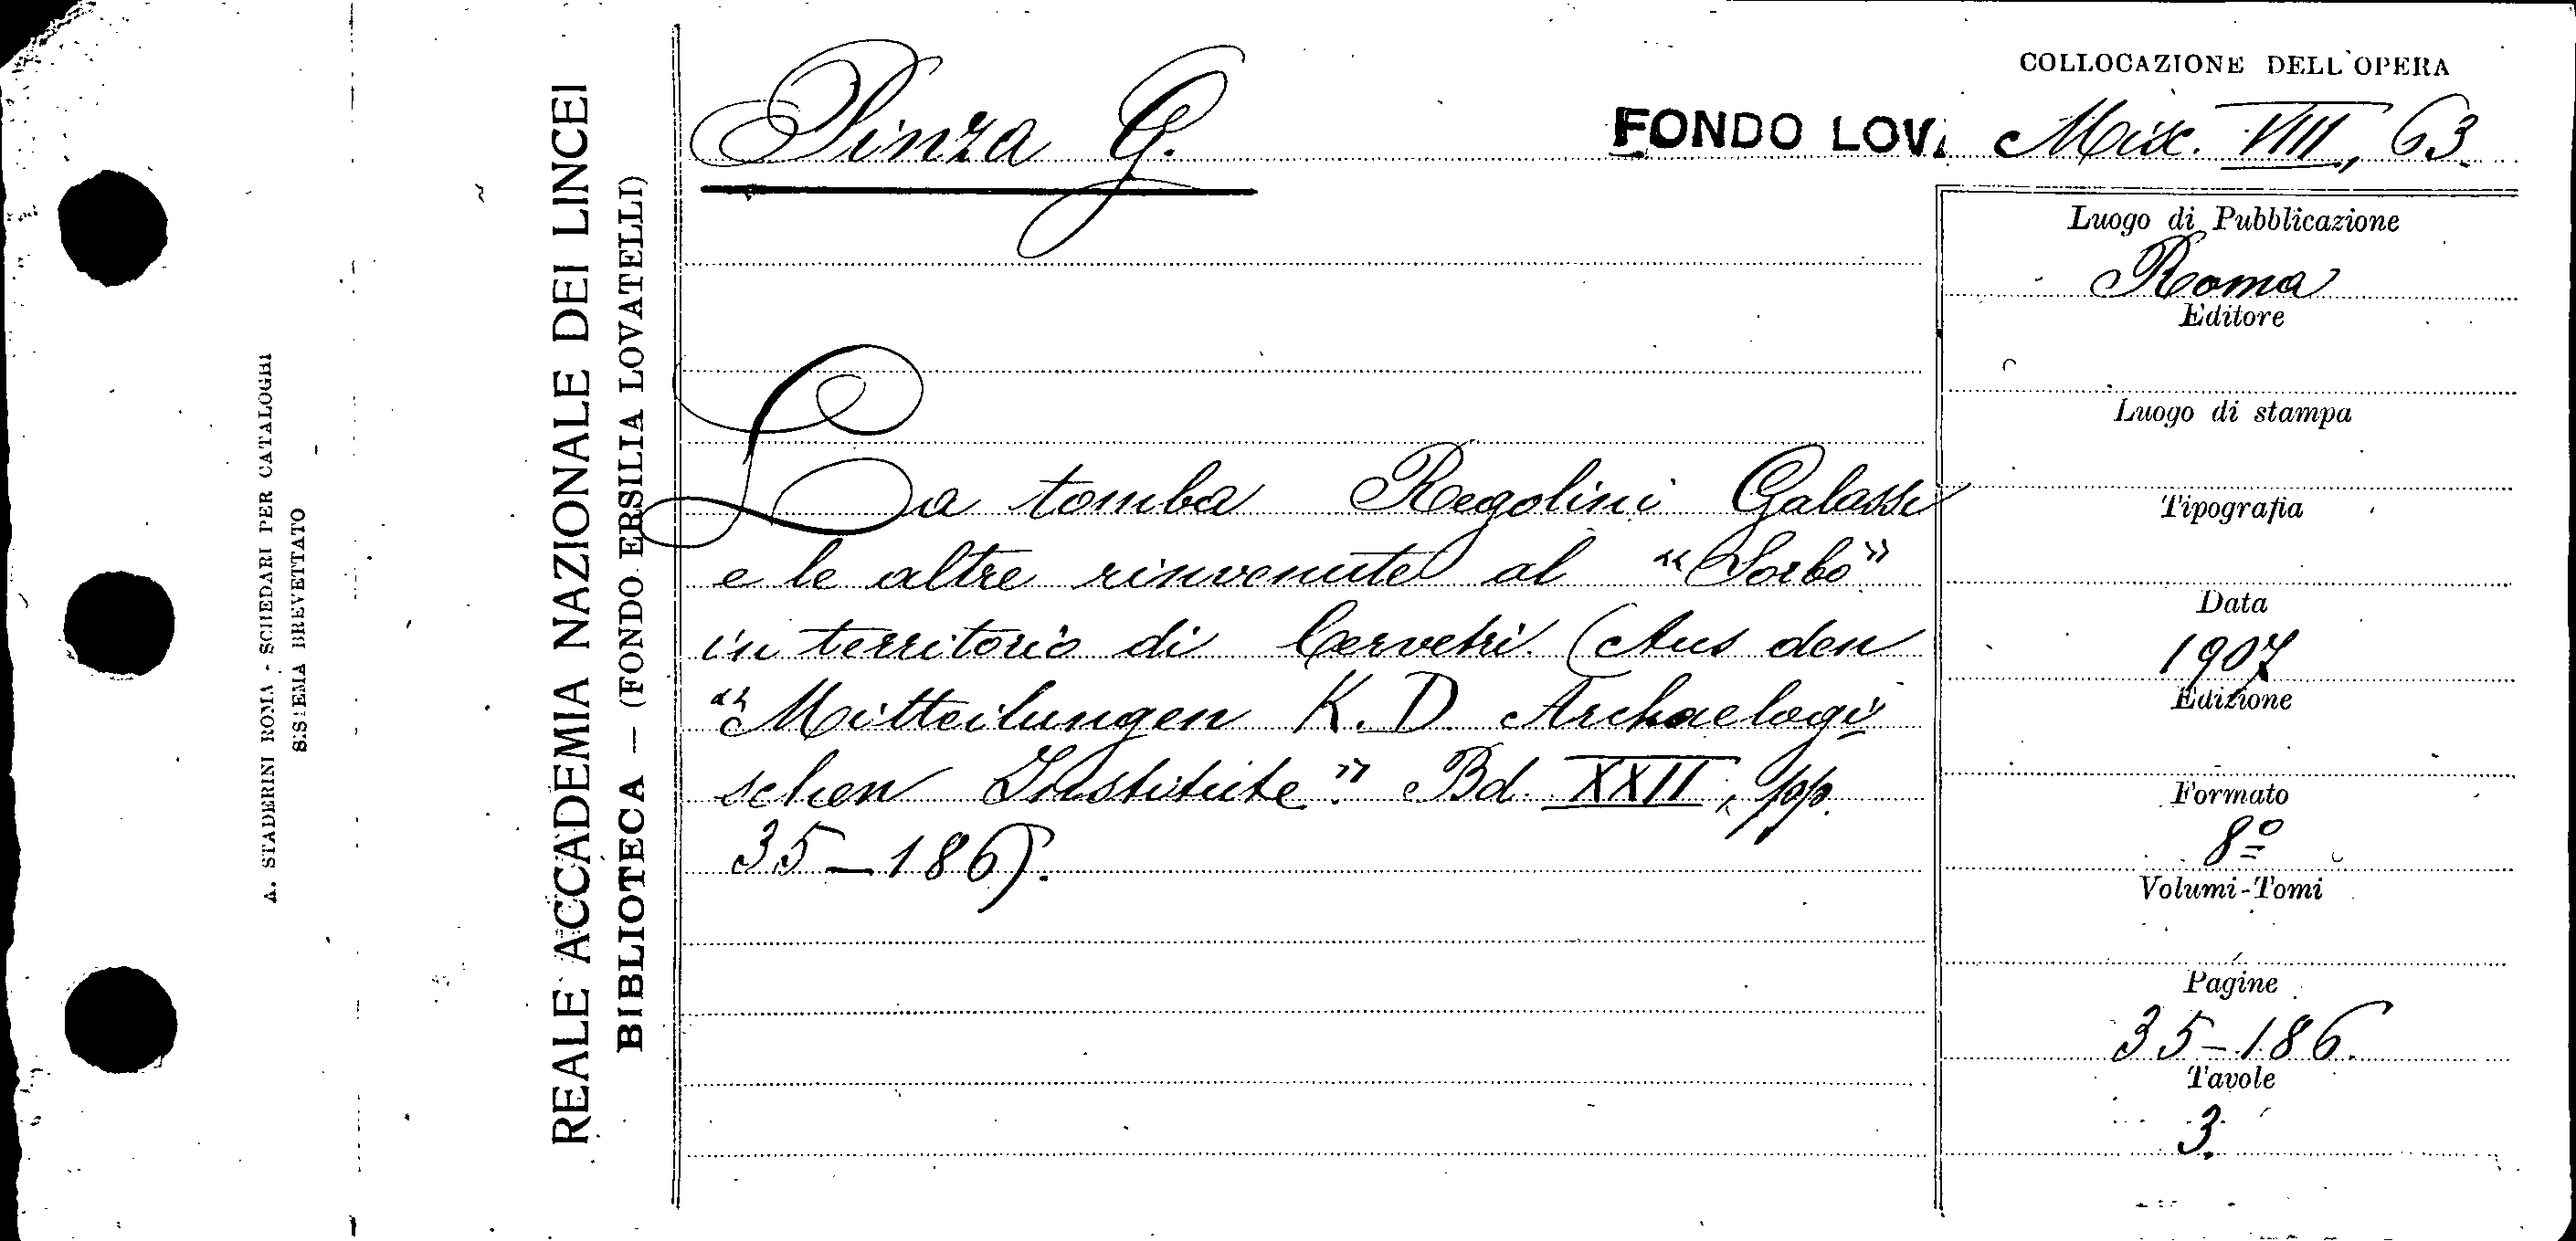 A. STADERINI ROMA - SCHEDARI PER CATALOGHI
SISTEMA BREVETTATO
REALE ACCADEMIA NAZIONALE DEI LINCEI
BIBLIOTECA — (FONDO ERSILIA LOVATELLI)
Pinza G.
COLLOCAZIONE DELL'OPERA
FONDO LOV. Misc. VIII, 63.
La tomba Regolini Galassi
e le altre rinvenute al "Sorbo"
in territorio di Cervetri. (Aus den
"Mitteilungen K. D. Archaelogi-
schen Institute". Bd. XXII, pp.
35-186).
Luogo di Pubblicazione
Roma
Editore
Luogo di stampa
Tipografia
Data
1907
Edizione
Formato
8º
Volumi-Tomi
Pagine
35-186.
Tavole
3.